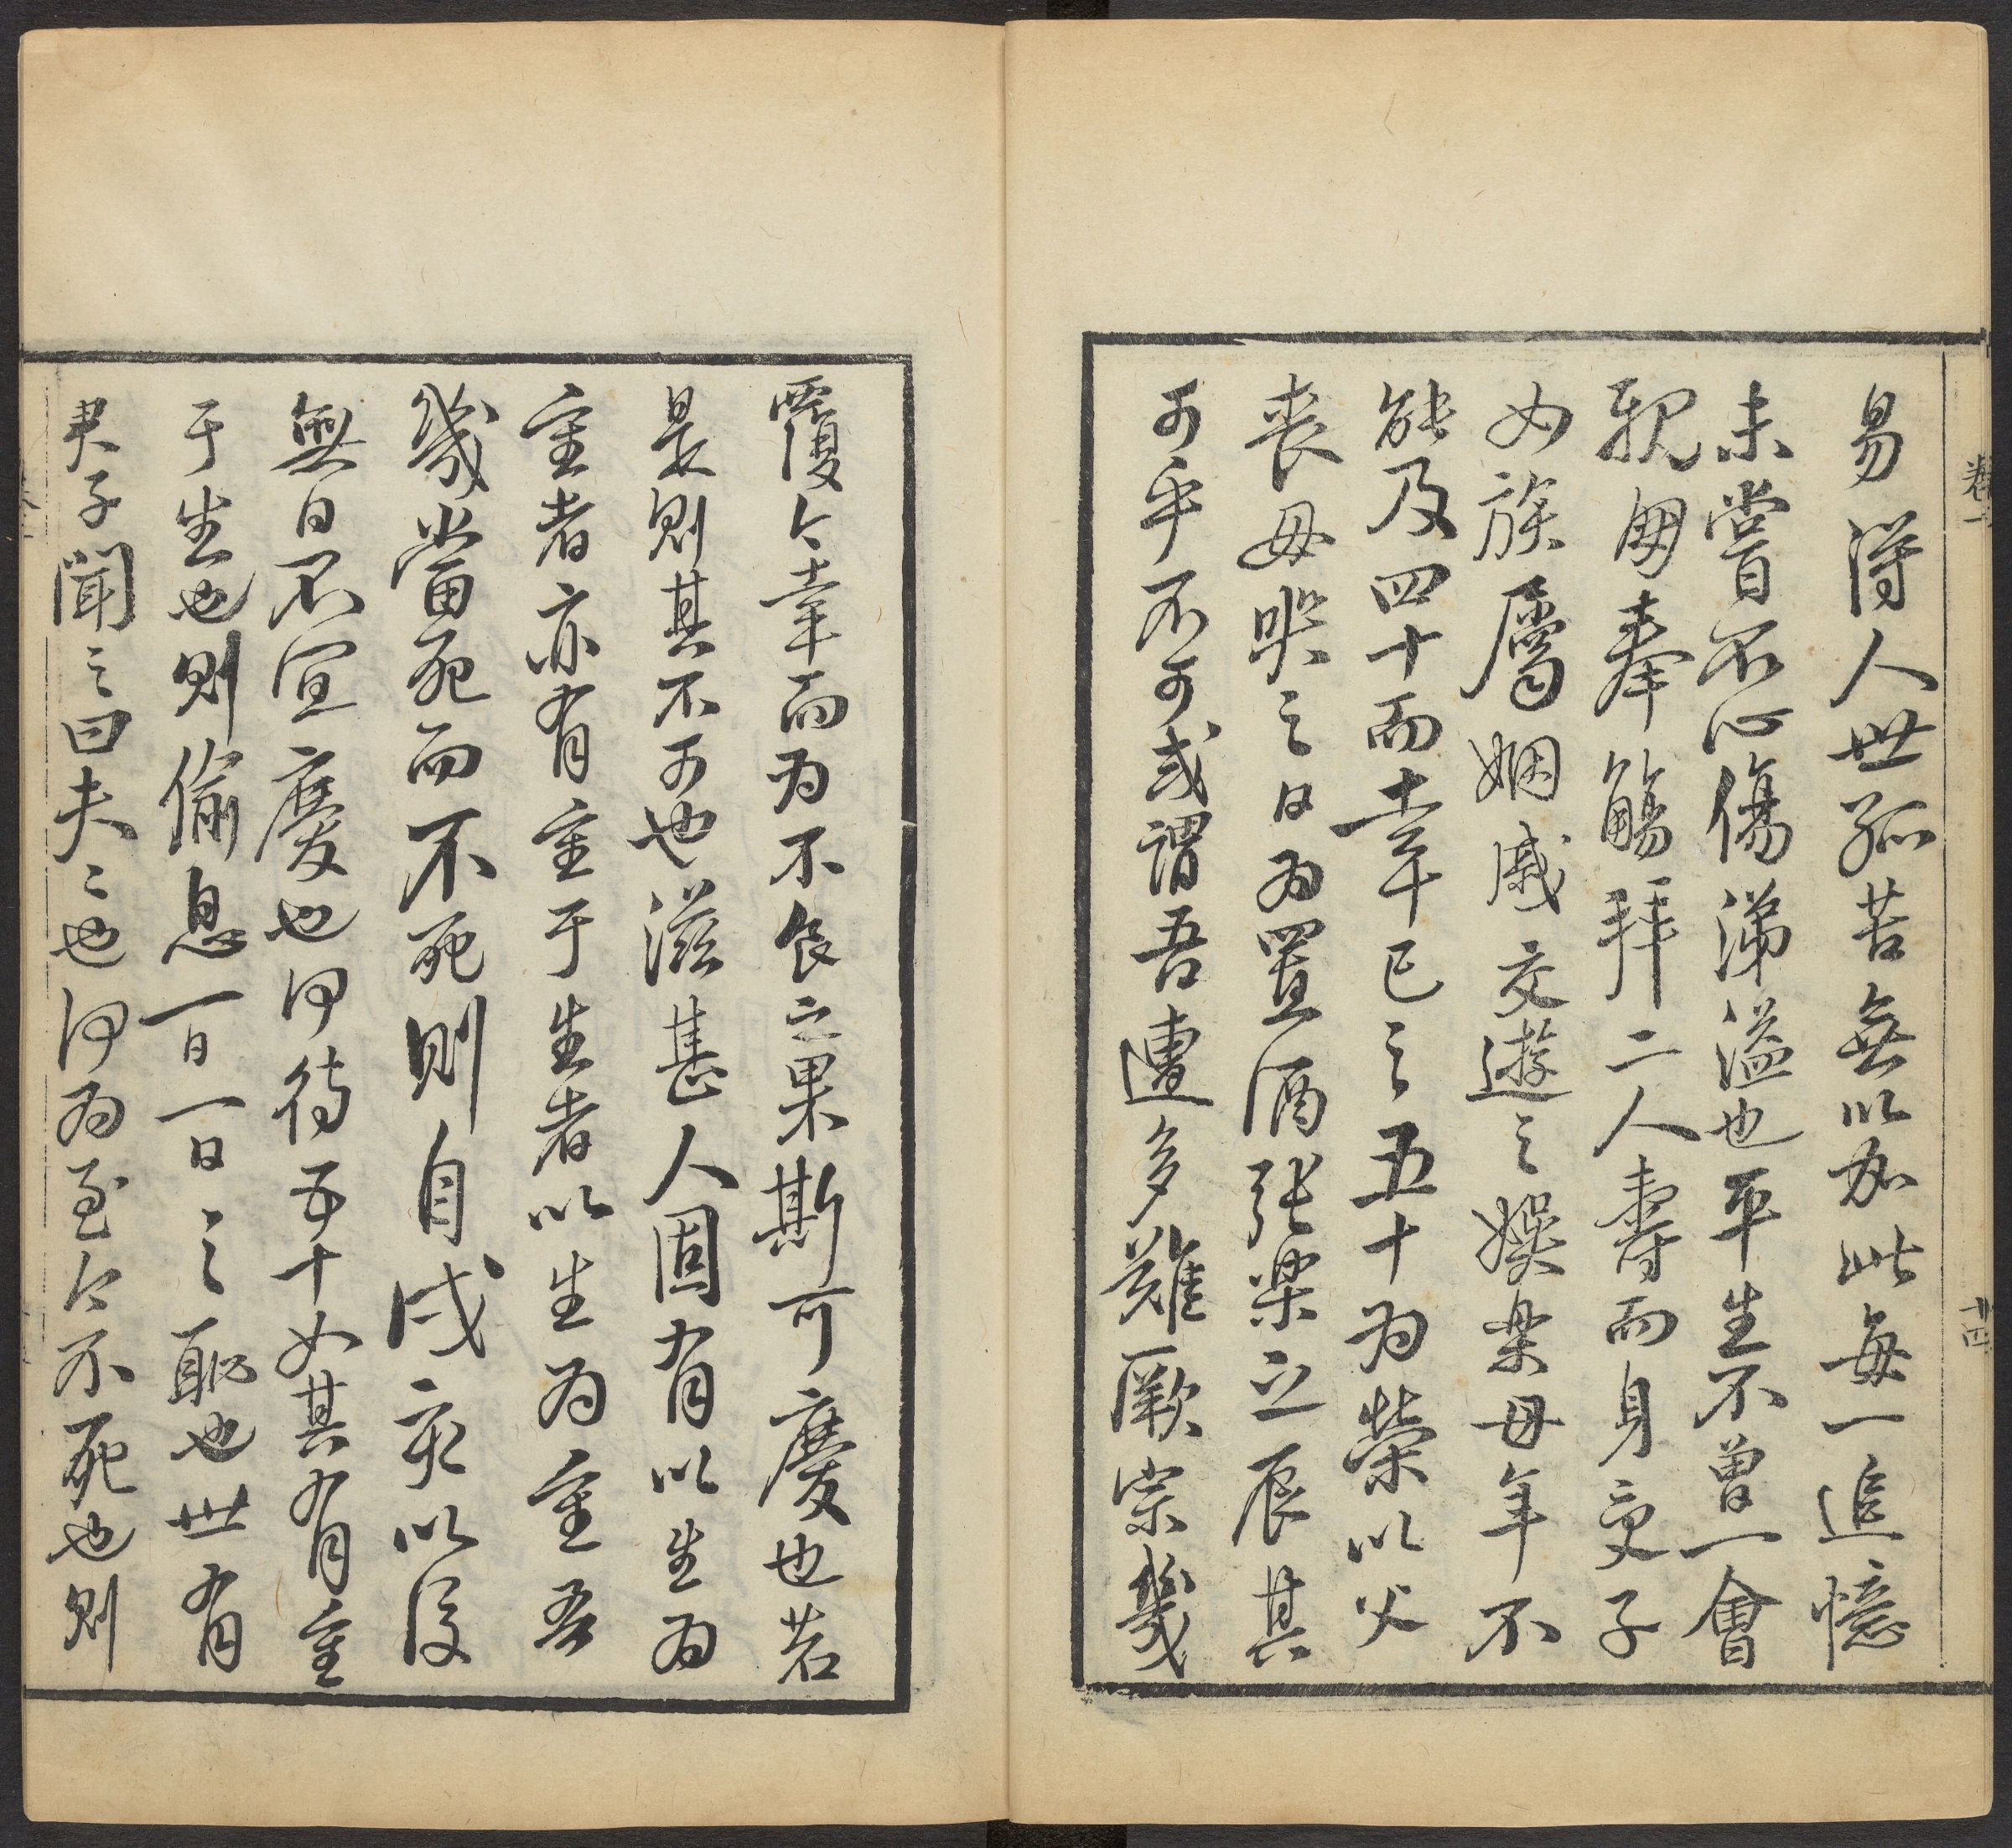 易得人世孤苦無以加此每一追憶
未嘗不心傷涕溢也平生不曾一會
親朋奉觴拜二人壽而身受子
女族屬姻戚交遊之娛樂母年不
能及四十而幸己之五十為榮以父
喪母哭之日為置酒張樂之辰其
可乎不可或謂吾遭多難厥宗幾
覆今幸而為不食之果斯可慶也若
是則其不可也滋甚人固有以生為
重者亦有重于生者以生為重吾
幾當死而不死則自戌亥以後
無日不宜慶也何待五十如其有重
于生也則偷息一日一日之恥也世有
君子聞之曰夫夫也何為至今不死也則
卷一
廿四